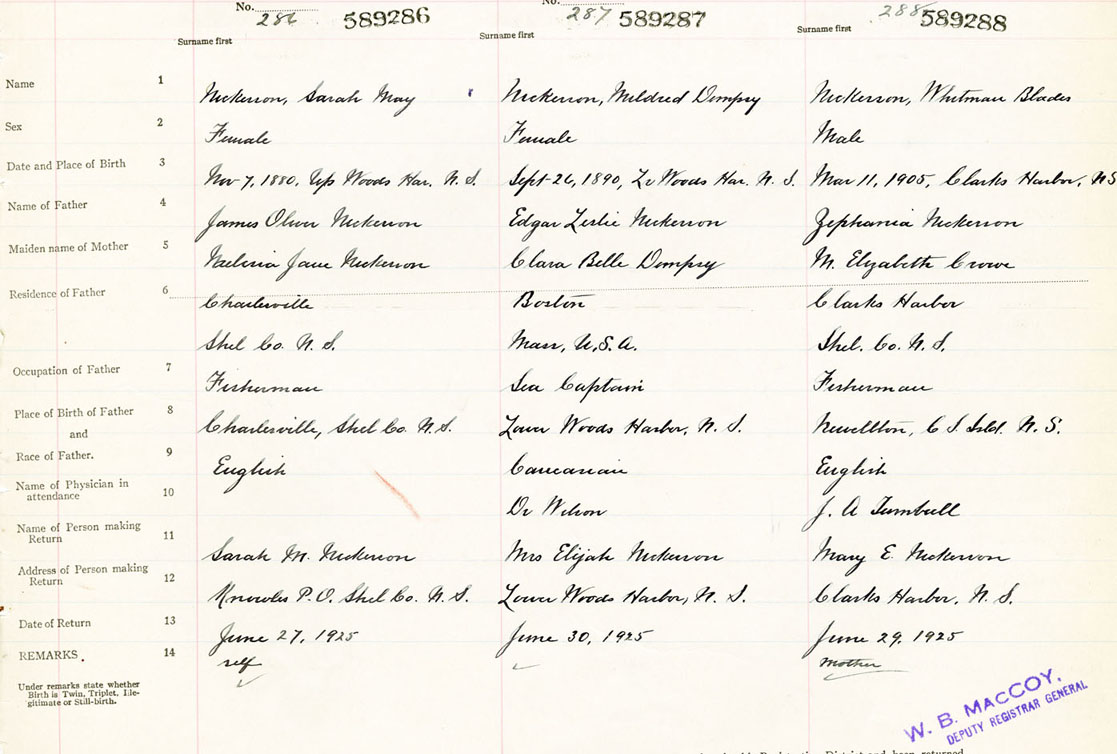 No. 286 589286
No. 287 589287
288 589288
Surname first Surname first Surname first
Name 1 Nickerson, Sarah May Nickerson, Mildred Dempsy Nickerson, Whitman Blades
Sex 2 Female Female Male
Date and Place of Birth 3 Nov 7, 1880, Up Woods Har. N. S. Sept 26, 1890, Lr Woods Har. N. S. Mar 11, 1905, Clarks Harbor, NS
Name of Father 4 James Oliver Nickerson Edgar Leslie Nickerson Zephania Nickerson
Maiden name of Mother 5 Jane Nickerson Clara Belle Dempsy M. Elizabeth Crowe
Residence of Father 6 Charlesville Boston Clarks Harbor
Shel Co. N. S. Mass, U.S.A. Shel. Co. N. S.
Occupation of Father 7 Fisherman Sea Captain Fisherman
Place of Birth of Father 8 Charlesville, Shel Co. N. S. Lower Woods Harbor, N. S. Newellton, C S Isld. N. S.
and
Race of Father. 9 English Caucasian English
Name of Physician in
attendance 10 Dr Wilson J. A Turnbull
Name of Person making
Return 11 Sarah M. Nickerson Mrs Elijah Nickerson Mary E. Nickerson
Address of Person making
Return 12 Knowles P.O. Shel Co. N. S. Lower Woods Harbor, N. S. Clarks Harbor, N. S.
Date of Return 13 June 27, 1925 June 30, 1925 June 29, 1925
REMARKS. 14 self mother
Under remarks state whether
Birth is Twin, Triplet, Ille-
gitimate or Still-birth.
W. B. MacCOY,
DEPUTY REGISTRAR GENERAL